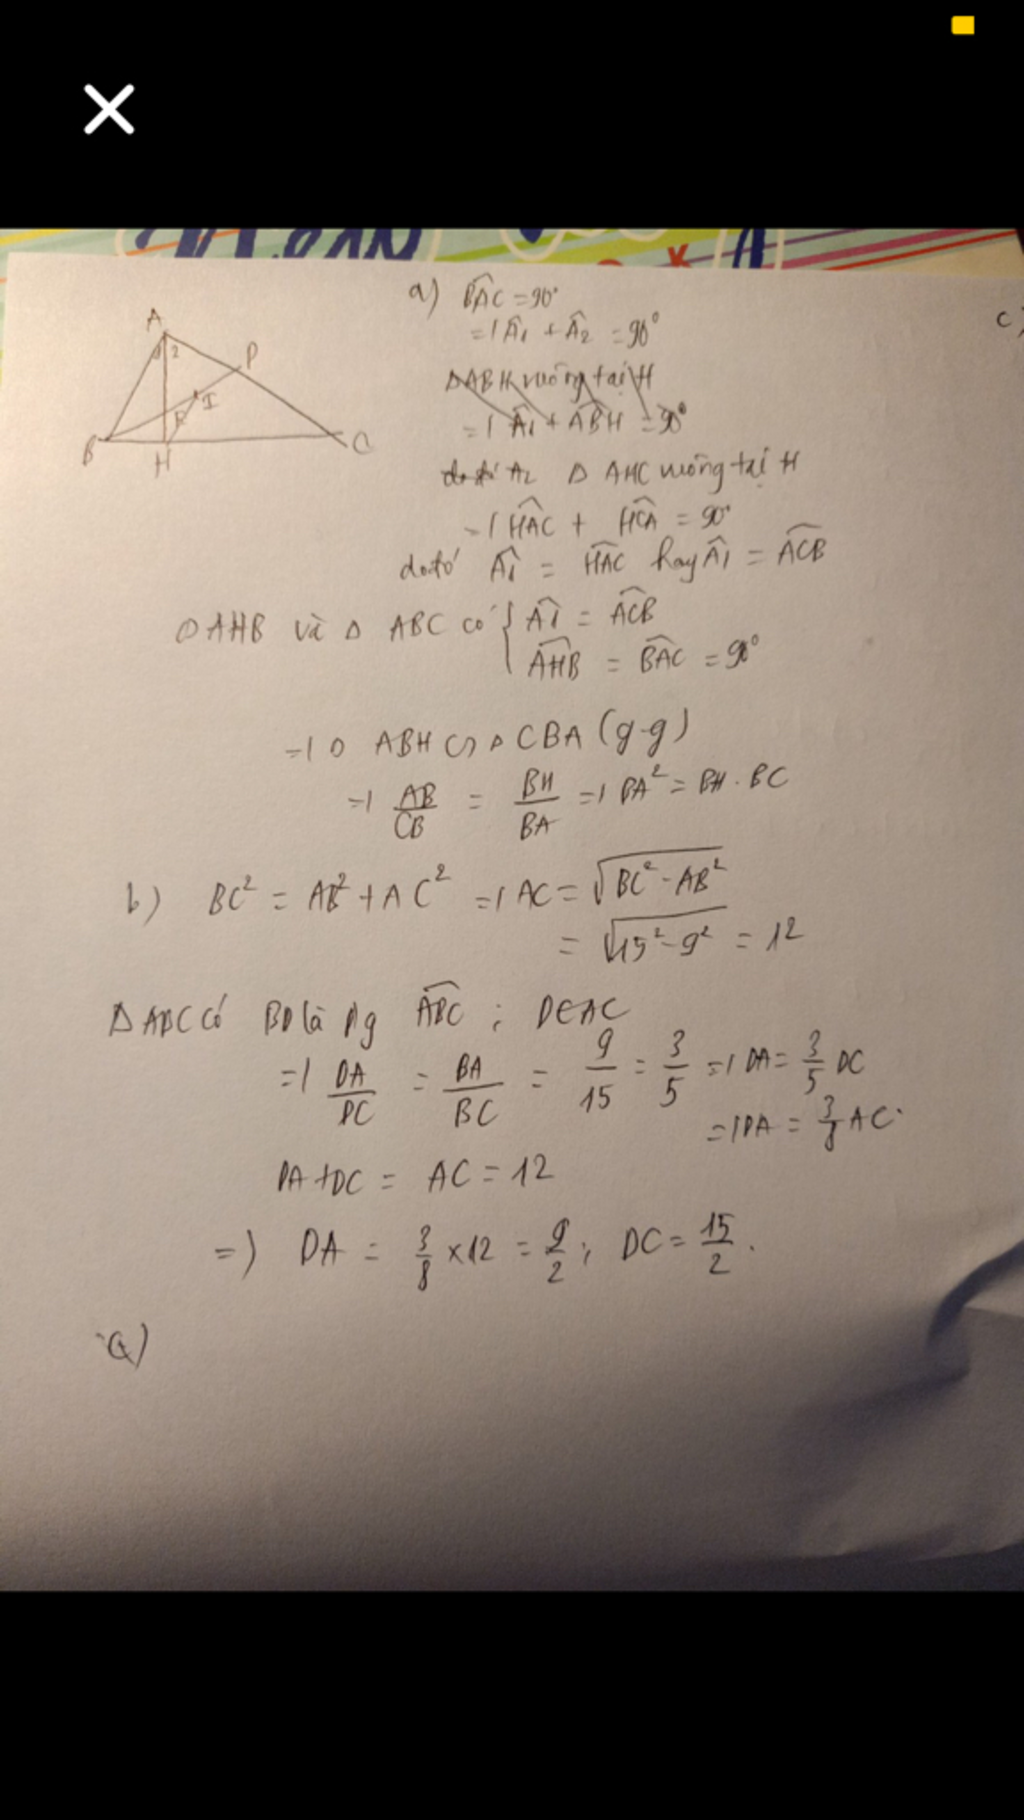 A
1 2
D
I
K
B
H
C
a) BAC = 90°
=> A1 + A2 = 90°
ΔABH vuông tại H
=> A1 + ABH = 90°
do đó A2 Δ AHC vuông tại H
=> HAC + HCA = 90°
do đó A1 = HAC hay A1 = ACB
Δ AHB và Δ ABC có { A1 = ACB
AHB = BAC = 90°
=> Δ ABH ∽ Δ CBA (g-g)
=> AB/CB = BH/BA => BA² = BH . BC
b) BC² = AB² + AC² => AC = √BC² - AB²
= √15² - 9² = 12
Δ ABC có BD là pg ABC ; D∈AC
=> DA/DC = BA/BC = 9/15 = 3/5 => DA = 3/5 DC
=> DA = 3/8 AC.
DA + DC = AC = 12
=> DA = 3/8 × 12 = 9/2 ; DC = 15/2 .
c)